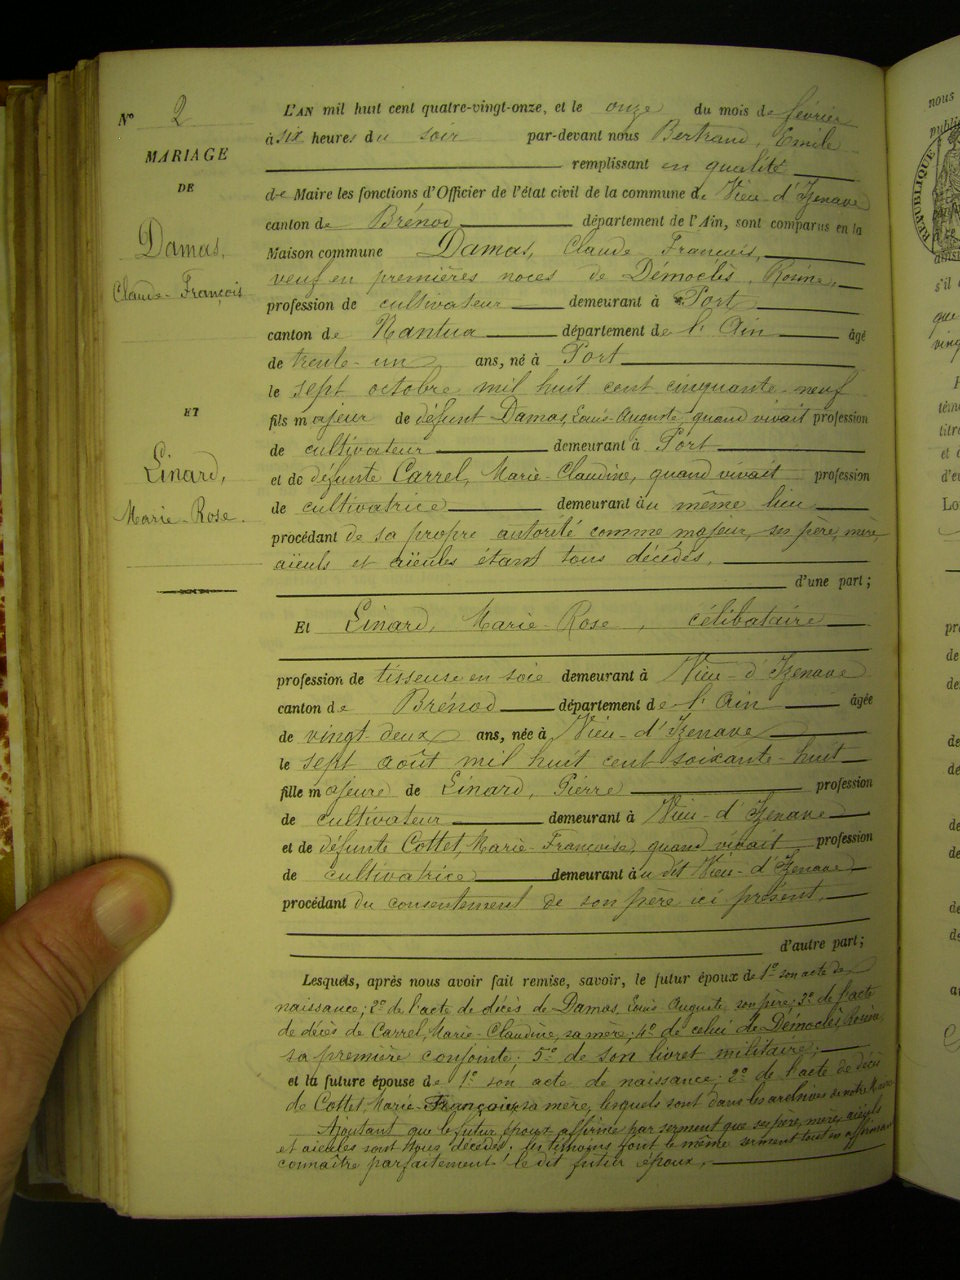 N° 2
MARIAGE
DE
Damas,
Claude-François
ET
Linard,
Marie-Rose.
L'AN mil huit cent quatre-vingt-onze, et le onze du mois de février
à six heures du soir par-devant nous Bertrand, Emile
remplissant en qualité
de Maire les fonctions d'Officier de l'état civil de la commune de Vieu-d'Izenave
canton de Brénod département de l'Ain, sont comparus en la
Maison commune Damas, Claude François,
veuf en premières noces de Démoclès, Rosine,
profession de cultivateur demeurant à Port
canton de Nantua département de l'Ain âgé
de trente-un ans, né à Port
le sept octobre mil huit cent cinquante-neuf
fils majeur de défunt Damas, Louis-Auguste, quand vivait profession
de cultivateur demeurant à Port
et de défunte Carrel, Marie-Claudine, quand vivait profession
de cultivatrice demeurant au même lieu
procédant de sa propre autorité comme majeur, ses père, mère,
aïeuls et aïeules étant tous décédés,
d'une part;
Et Linard, Marie-Rose, célibataire
profession de tisseuse en soie demeurant à Vieu-d'Izenave
canton de Brénod département de l'Ain âgée
de vingt-deux ans, née à Vieu-d'Izenave
le sept août mil huit cent soixante-huit
fille majeure de Linard, Pierre profession
de cultivateur demeurant à Vieu-d'Izenave
et de défunte Cottet, Marie-Françoise, quand vivait, profession
de cultivatrice demeurant au dit Vieu-d'Izenave
procédant du consentement de son père ici présent,
d'autre part;
Lesquels, après nous avoir fait remise, savoir, le futur époux de 1° son acte de
naissance; 2° de l'acte de décès de Damas, Louis-Auguste son père; 3° de l'acte
de décès de Carrel, Marie-Claudine, sa mère; 4° de celui de Démoclès Rosine
sa première conjointe; 5° de son livret militaire;
et la future épouse de 1° son acte de naissance; 2° de l'acte de décès
de Cottet, Marie-Françoise, sa mère, lesquels sont dans les archives de notre
Ajoutant que le futur époux affirme par serment que ses père, mère, aïeuls
et aïeules sont tous décédés; les témoins font le même serment tout en affirmant
connaître parfaitement le dit futur époux,
nous
RÉPUBLIQUE
s'il
que